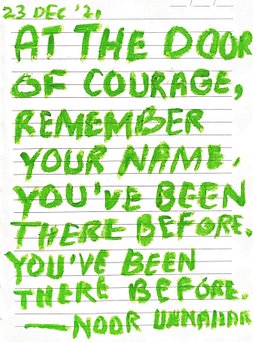 23 DEC '21
AT THE DOOR
OF COURAGE,
REMEMBER
YOUR NAME.
YOU'VE BEEN
THERE BEFORE.
YOU'VE BEEN
THERE BEFORE.
—NOOR UNNAHAR